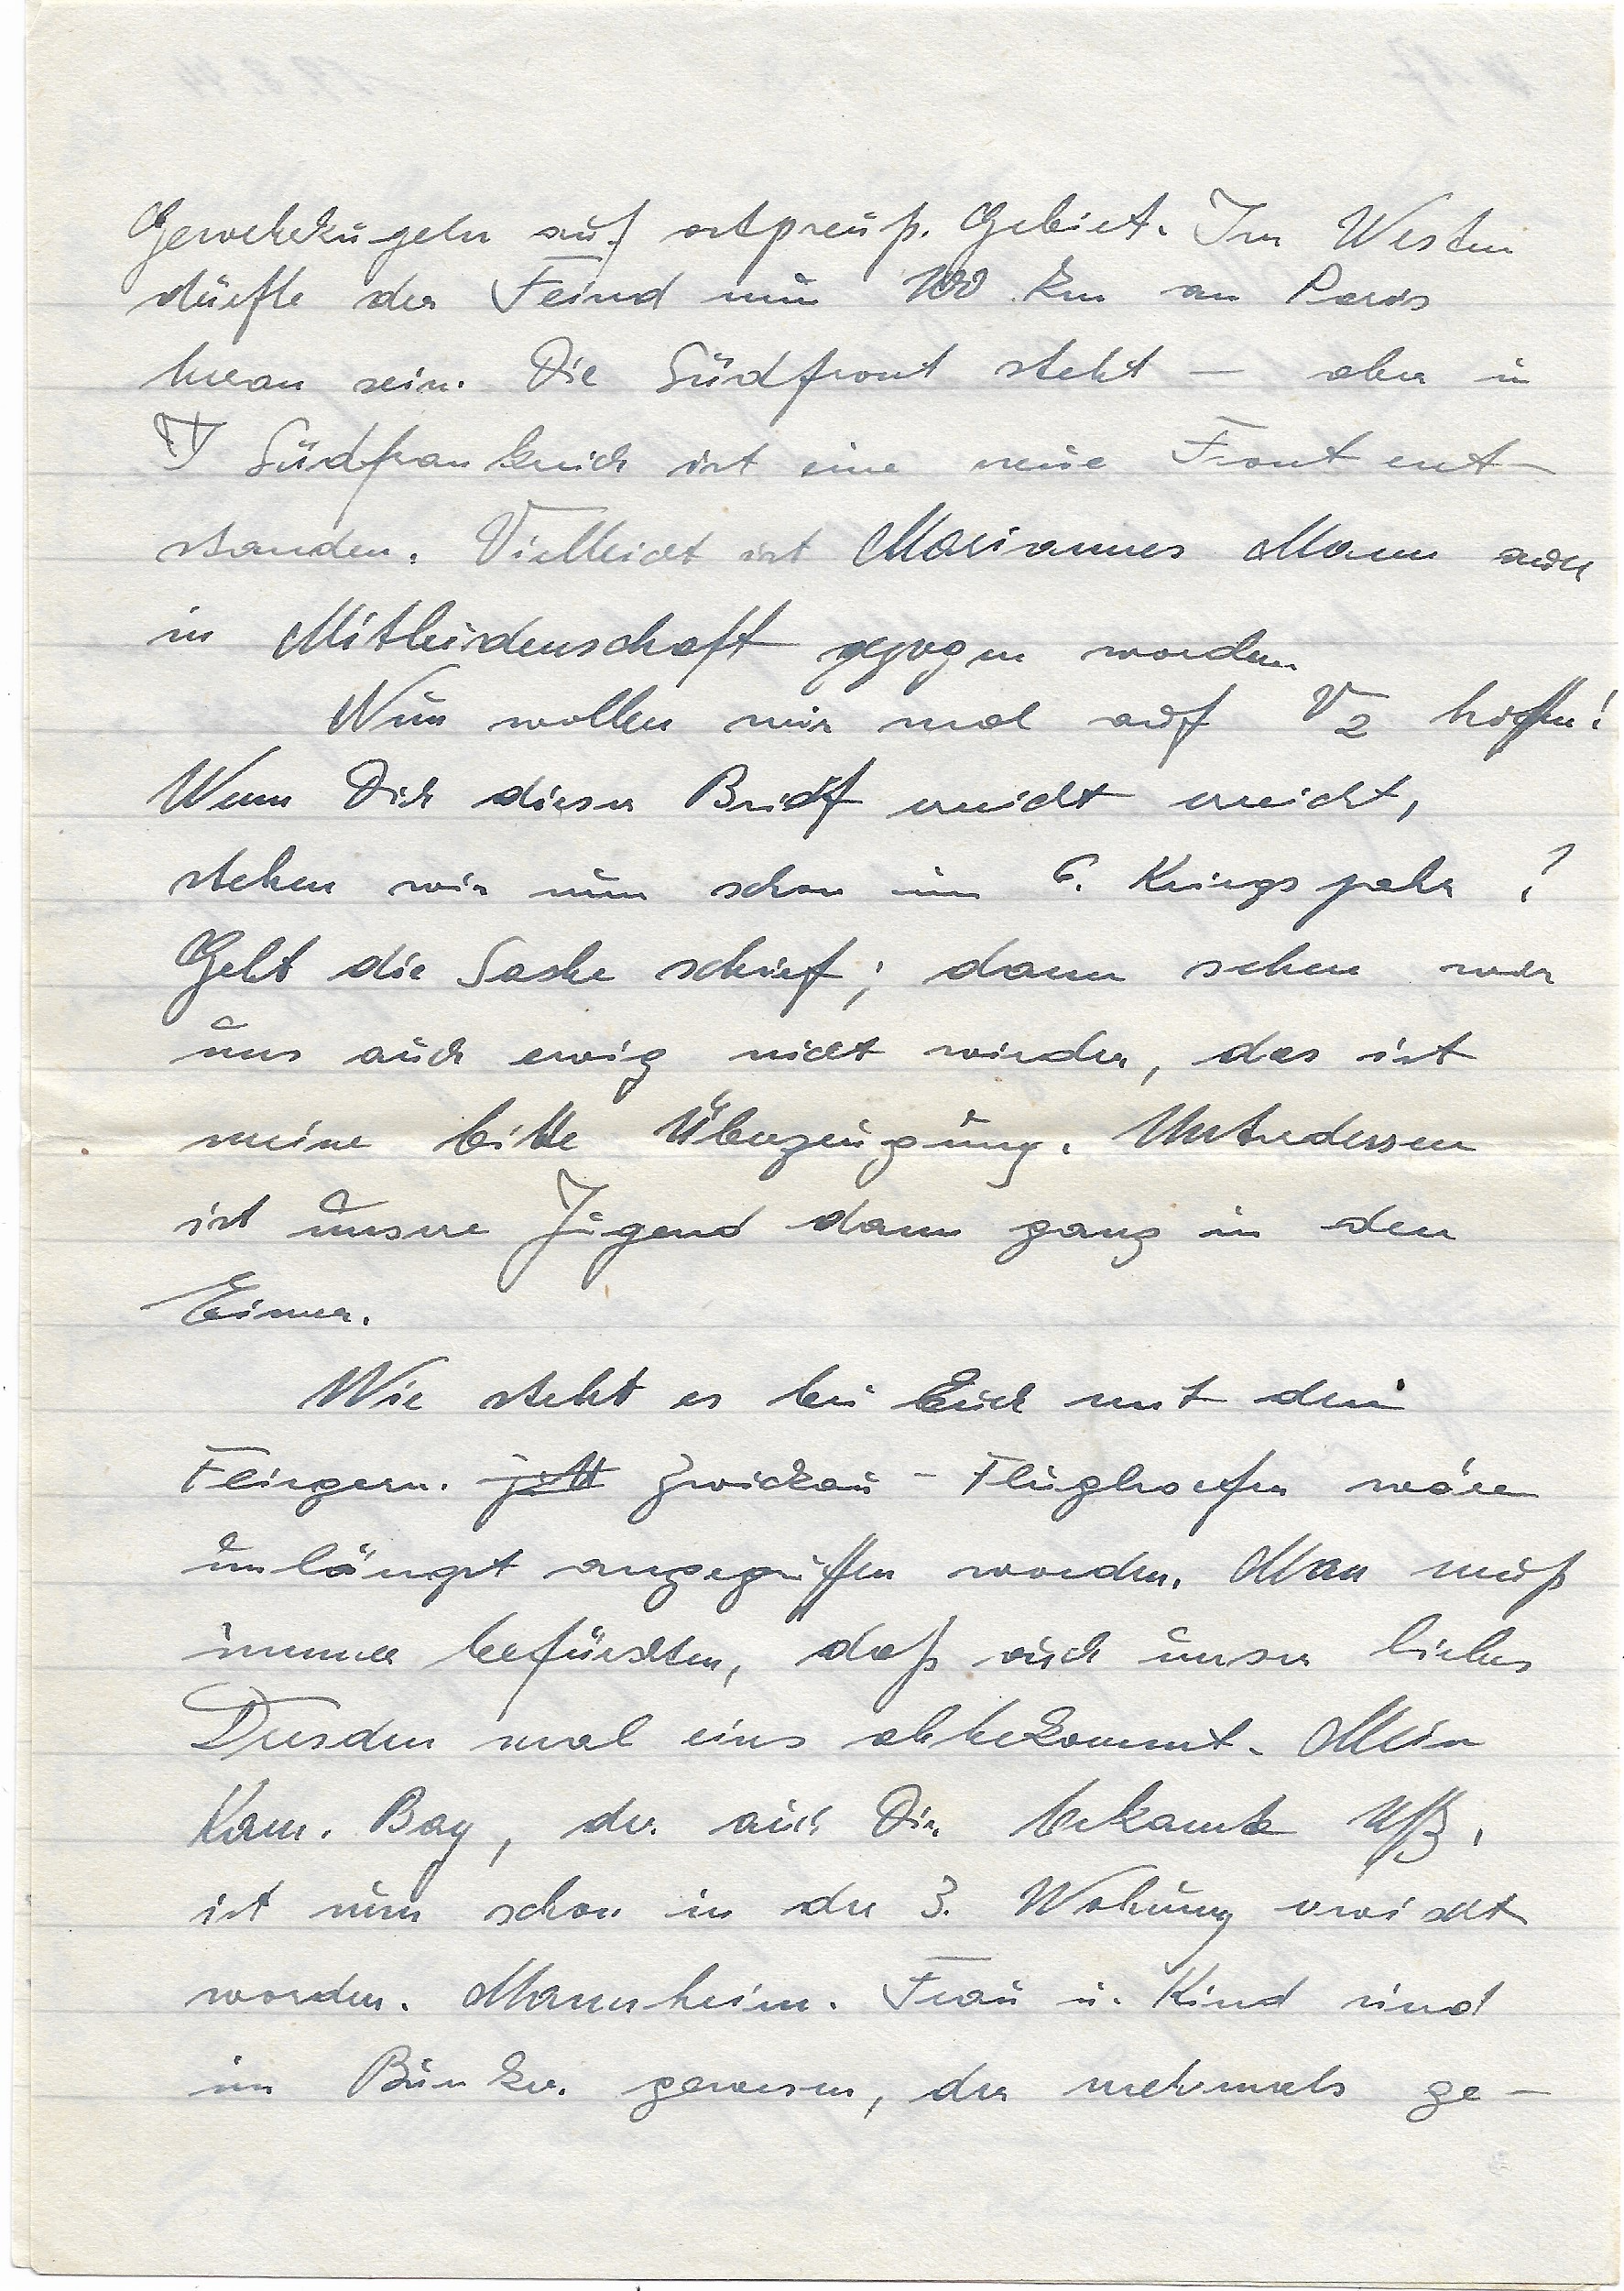 Gewehrkugeln auf ostpreuß. Gebiet. Im Westen
dürfte der Feind nun 100 km an Paris
heran sein. Die Südfront steht — aber in
Südfrankreich ist eine neue Front ent-
standen. Vielleicht ist Mariannes Mann auch
in Mitleidenschaft gezogen worden.
Nun wollen wir mal auf V2 hoffen!
Wenn Dich dieser Brief erreicht erreicht,
stehen wir nun schon im 6. Kriegsjahr!
Geht die Sache schief; dann sehen wir
uns auch ewig nicht wieder, das ist
meine bitte Überzeugung. Unterdessen
ist unsere Jugend dann ganz in den
Eimer.
Wie steht es bei Euch mit den
Fliegern. Zwickau - Flughafen wäre
unlängst angegriffen worden. Man muß
immer befürchten, daß auch unser liebes
Dresden mal eins abbekommt. Mein
Kam. Bay, der auch Dir bekannte Uffz.
ist nun schon in der 3. Wohnung erwischt
worden. Mannheim. Frau u. Kind sind
im Bunker gewesen, der mehrmals ge-